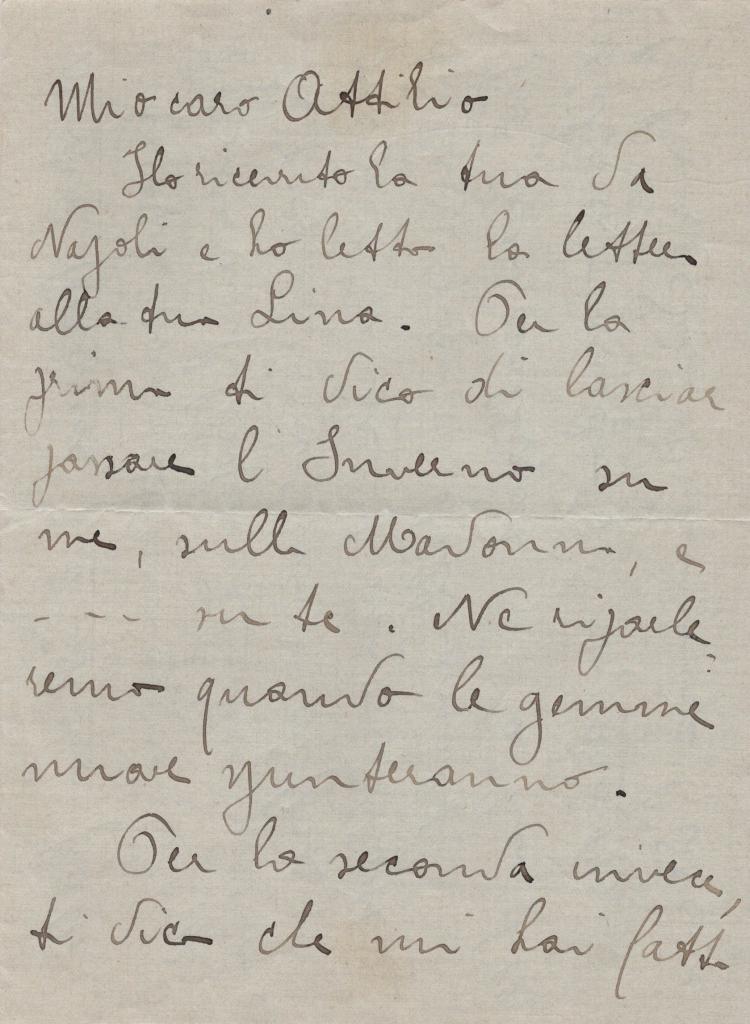 Mio caro Attilio
Ho ricevuto la tua da
Napoli e ho letto la lettera
alla tua Lina. Per la
prima ti dico di lasciar
passare l'Inverno su
me, sulla Madonna, e
- - - su te. Ne riparle
remo quando le gemme
nuove spunteranno.
Per la seconda invece,
ti dico che mi hai fatto